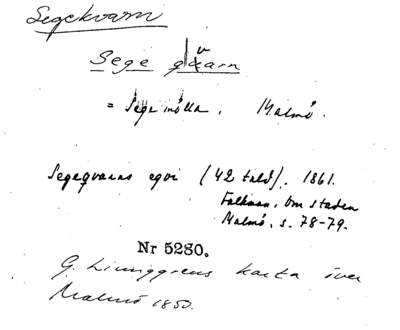 Segekvarn
Sege qvarn
= Sege mölla, Malmö.
Segeqvarns egor (42 tnld). 1861.
Falkman, Om staden
Malmö, s. 78-79.
Nr 5280.
G. Ljunggrens karta över
Malmö 1850.